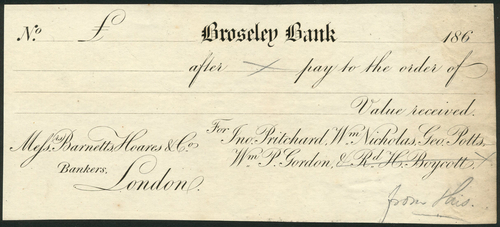 No £ Broseley Bank 186
after × pay to the order of
Value received.
For Jno. Pritchard, Wm. Nicholas, Geo. Potts,
Wm. P. Gordon, & Rd. H. Boycott. ×
Messrs. Barnetts Hoares & Co
Bankers,
London.
from this.